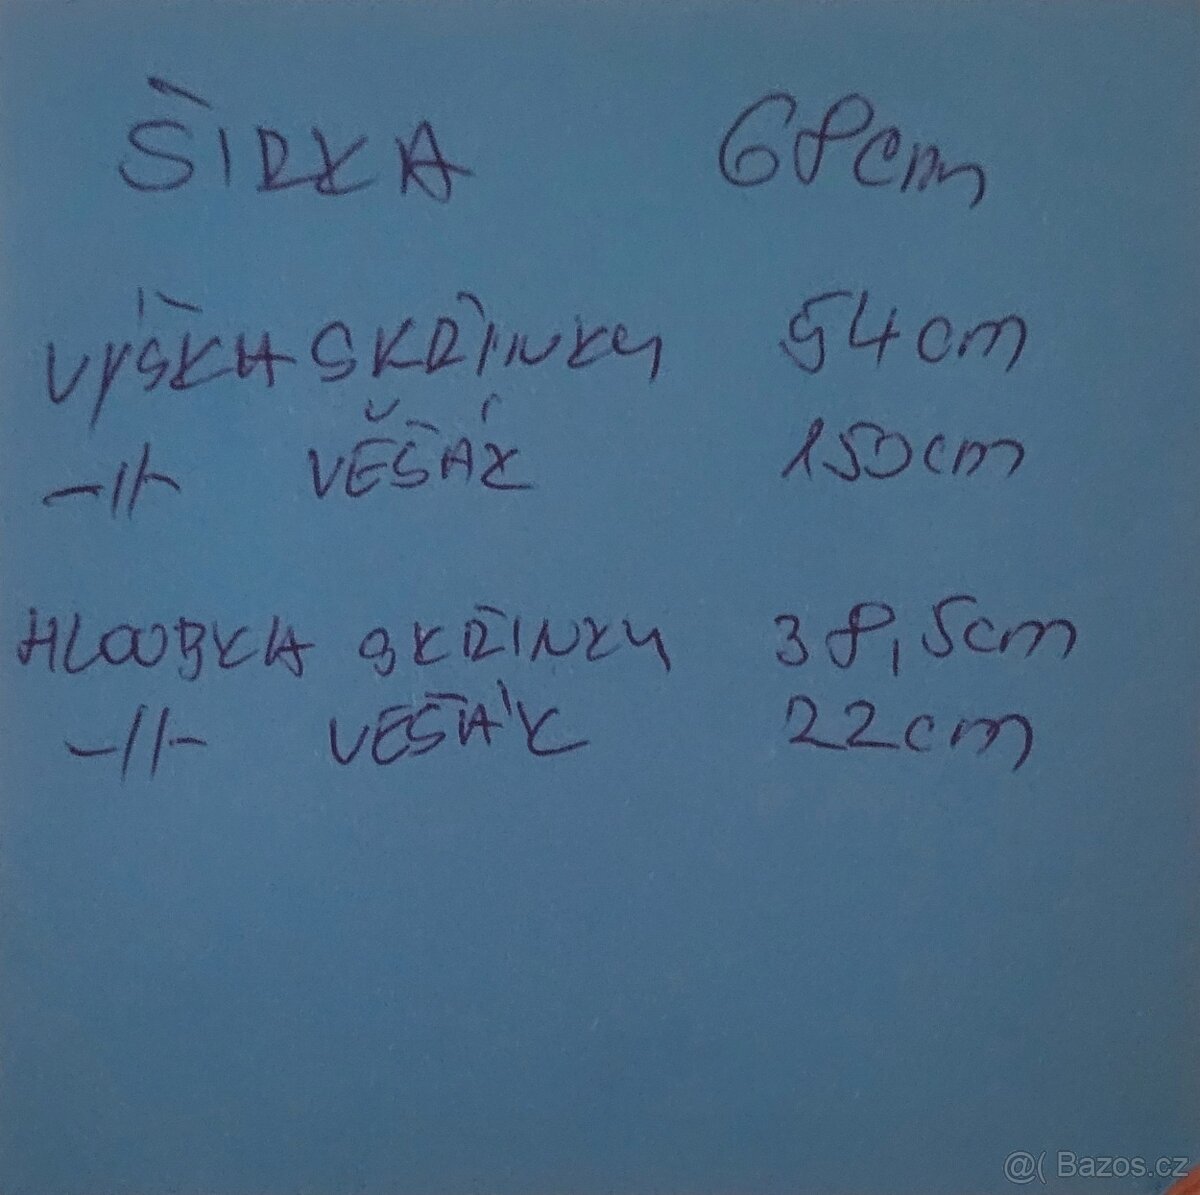 ŠIRKA 68cm
VÝŠKA SKŘINKY 54cm
-11- VĚŠÁK 150cm
HLOUBKA SKŘINKY 38,5cm
-11- VĚŠÁK 22cm
@( Bazos.cz